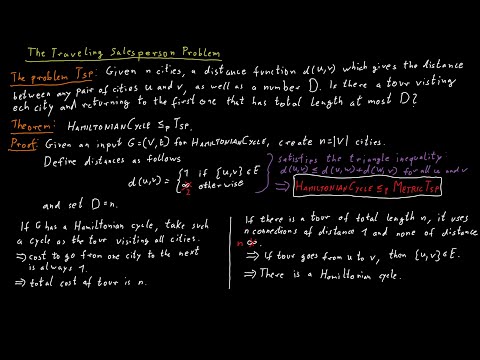 The Traveling Salesperson Problem
The problem TSP: Given n cities, a distance function d(u,v) which gives the distance
between any pair of cities u and v, as well as a number D. Is there a tour visting
ech city and returning to the first one that has total length at most D?
Theorem: HAMILTONIANCYCLE ≤p TSP.
Proof: Given an input G=(V,E) for HAMILTONIANCYCLE, create n=|V| cities.
Define distances as follows
d(u,v) = { 1 if {u,v}∈E
∞ 2 otherwise
and set D=n.
satisfies the triangle inequality
d(u,v) ≤ d(u,w)+d(w,v) for all u and v
⇒ HAMILTONIANCYCLE ≤p METRICTSP
If G has a Hamiltonian cycle, take such
a cycle as the tour visiting all cities.
⇒ cost to go from one city to the next
is always 1.
⇒ total cost of tour is n.
If there is a tour of total length n, it uses
n connections of distance 1 and none of distance
∞.
⇒ If tour goes from u to v, then {u,v}∈E.
⇒ There is a Hamiltonian cycle.